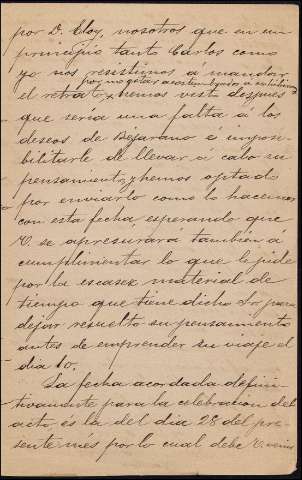 por D. Eloy, nosotros que en un
principio tanto Carlos como
yo nos resistimos á mandar
por no estar acostumbrados á exhibirnos
el retrato, hemos visto despues
que seria una falta á los
deseos de Bejarano é imposi-
bilitarle de llevar a cabo su
pensamiento, y hemos optado
por enviarlo como lo hacemos
con esta fecha, esperando que
V. se apresurará también á
cumplimentar lo que le pide
por la escasez material de
tiempo que tiene dicho Sr. para
dejar resuelto su pensamiento
antes de emprender su viaje el
dia 10.
La fecha acordada defini-
tivamente para la celebracion del
acto, es la del dia 28 del pre-
sente més por lo cual debe V. venir